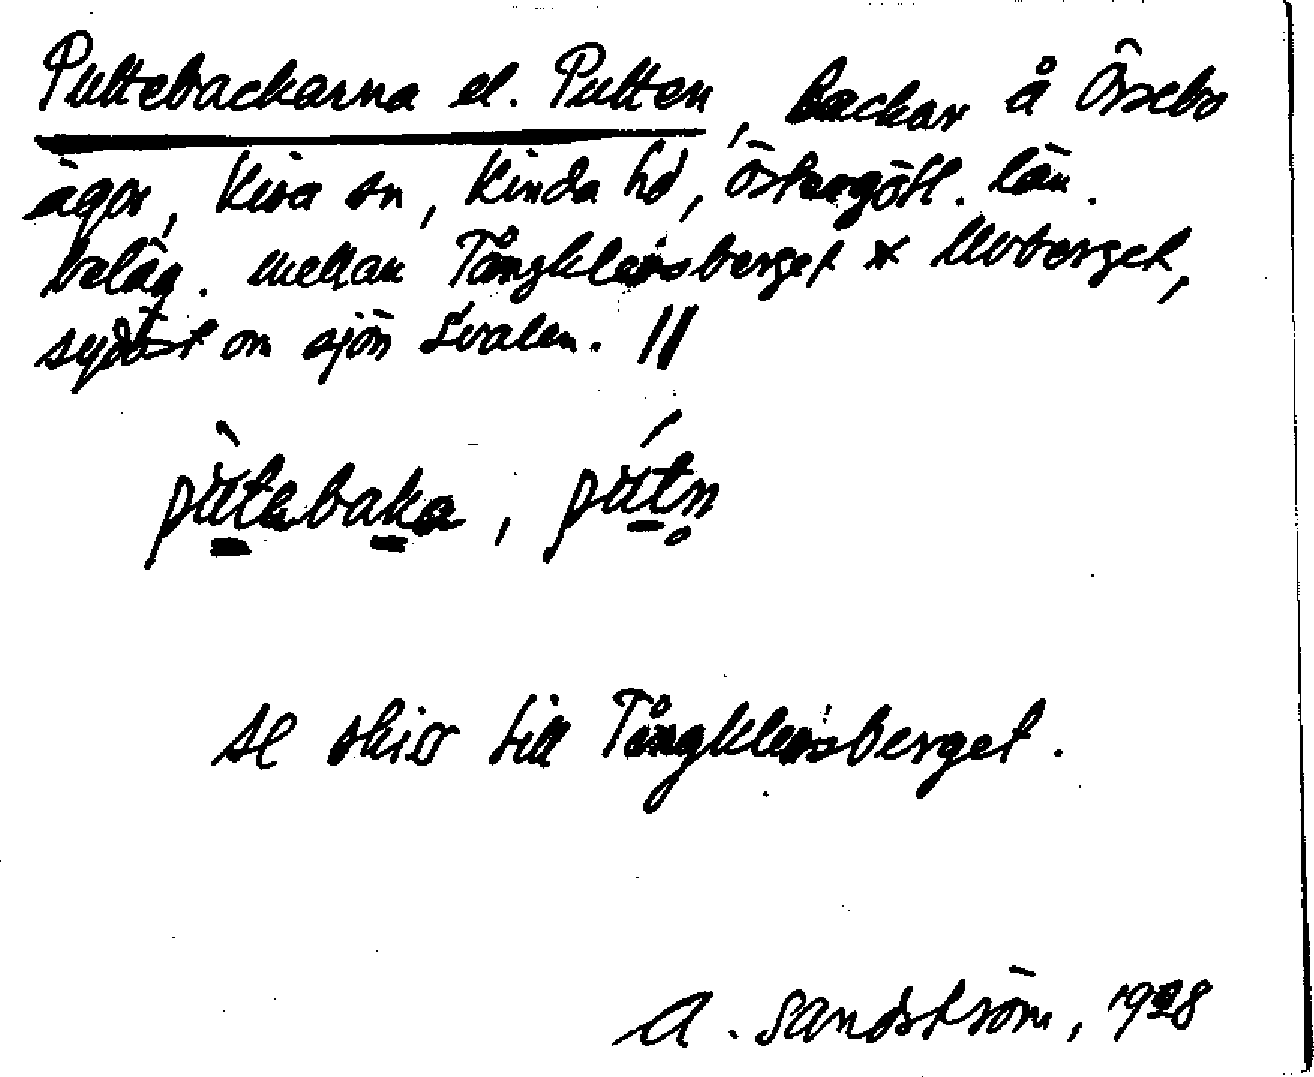 Puttebackarna el. Putten, backar å Örsebo
ägor, Kisa sn, Kinda hd, Östergötl. län.
beläg. mellan Tångkleisberget × Uvberget,
sydöst om sjön Svalen. //
pùtebaka, pútn
se skiss till Tångkleisberget.
A. Sandström, 1928